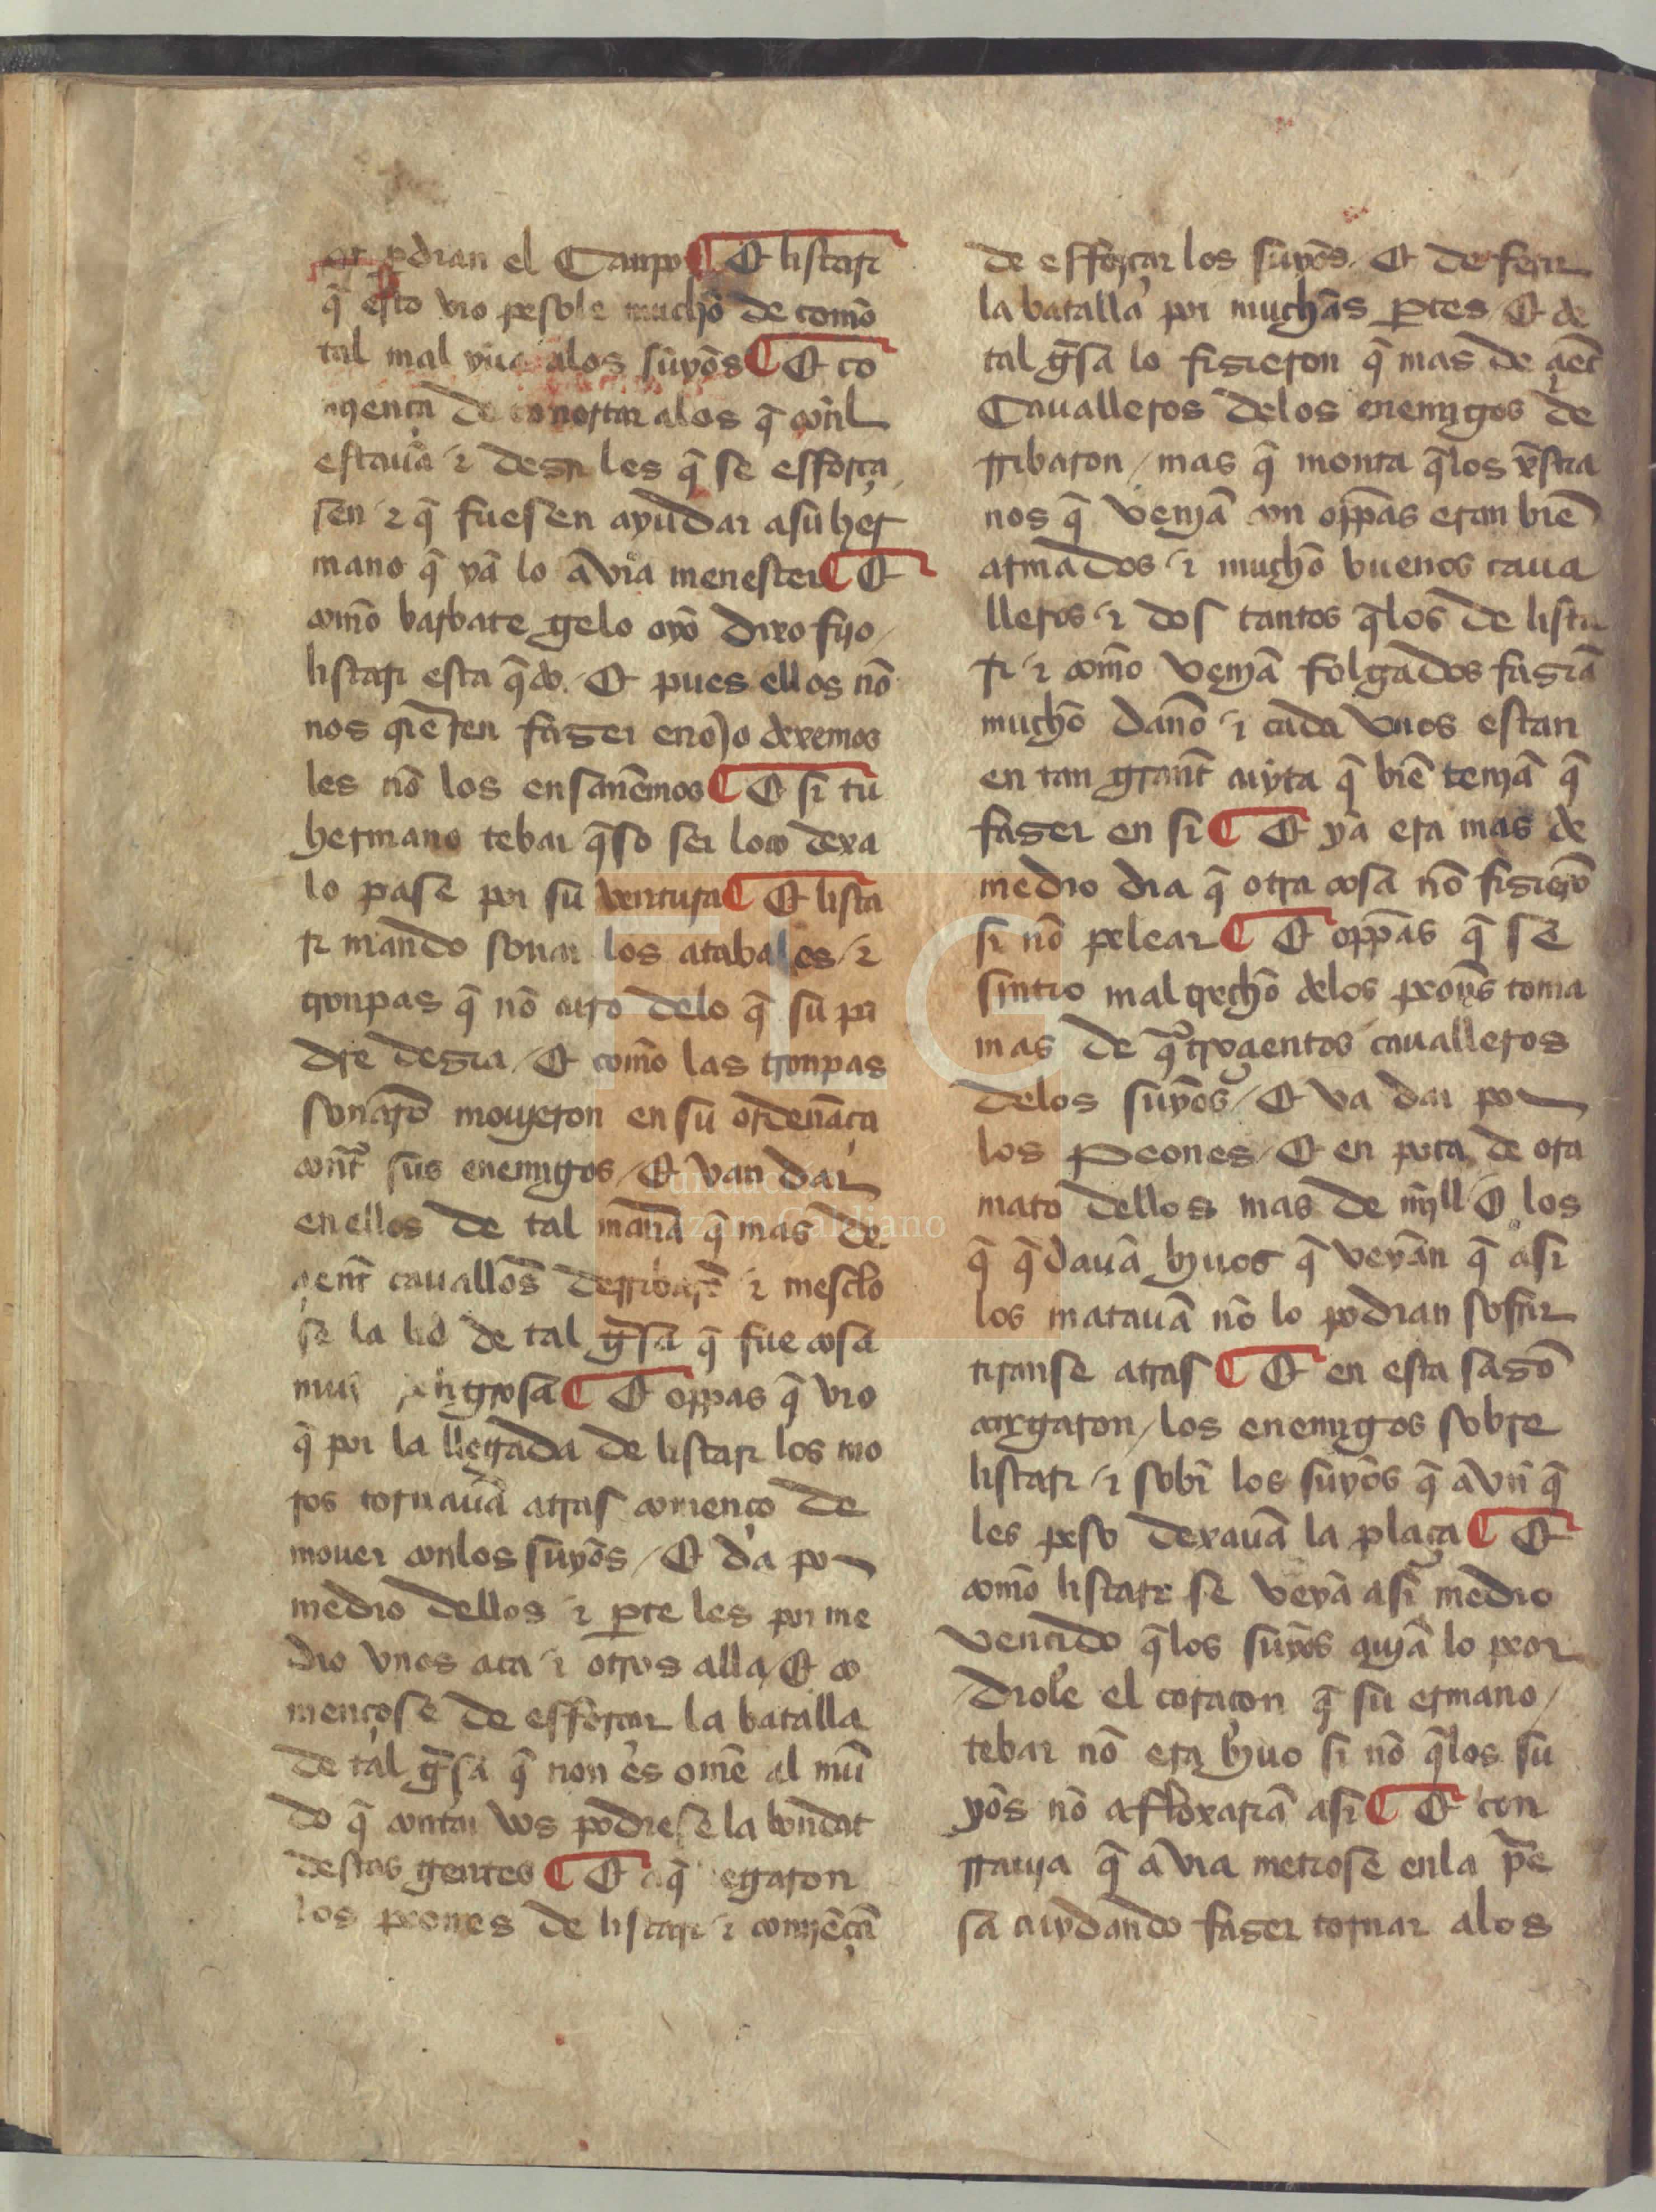 pdrian el Canpo ¶ Et listari
q̄ esto vio pesole muchō de comō
tal mal yua alos suyōs ¶ Et co
mença de conortar alos q̄ con̄l
estauā ⁊ desir les q̄ se efforça
sen ⁊ q̄ fuesen ayudar asu her
mano q̄ yā lo āvia menester ¶ Et
comō barbate gelo oyō dixo fijo /
listari esta q̄do. Et pues ellos nō
nos q̄erē fazer enojo dexemos
les nō los ensanēmos ¶ Et si tu
hermano tebar q̄so ser loco dexa
lo pase por su ventura ¶ Et lista
ri mando sonar los atabales / ⁊
tronpas q̄ nō curo delo q̄ su pa
dre dezia / Et comō las tronpas
sonarō mouieron en su ordenāça
cont̄ sus enemigos / Et van dar
enellos de tal man̄a q̄ mas de
çent̄ cauallōs derribarō ⁊ mesclo
se la lid de tal gⁱsa q̄ fue cosa
mui ¶ Et oppas q̄ vio
q̄ por la llegada de listari los mo
ros tornauā atras començo de
mouer conlos suyōs / Et da por
medio dellos ⁊ ꝑte les por me
dio vnos aca ⁊ otros alla / Et co
mençose de efforçar la batalla
de tal gⁱsa q̄ non es omē al mū
do q̄ contar vos podiese la bondat
destas gentes ¶ Et egaron
los peones de listari ⁊ comiēçā
de efforçar los suyōs. Et de ferir
la batalla por muchās ꝑtes / Et de
tal gⁱsa lo fizieron q̄ mas de çent̄
Caualleros delos enemigos de
rribaron / mas q̄ monta q̄los xr̄stia
nos q̄ veniā con oppās eran biē
armados ⁊ muchō buenos caua
lleros ⁊ dos tantos q̄los de lista
ri ⁊ comō veniā folgados faziā
muchō danō ⁊ cada vnos estan
en tan grant̄ cuyta q̄ biē teniā q̄
fazer en si ¶ Et yā era mas de
medio dia q̄ otra cosa nō fizierō
si nō pelear ¶ Et oppās q̄ se
sintio mal trechō delos peon̄s toma
mas de qᵃtroçientos caualleros
delos suyōs / Et va dar por
los peones / Et en poca de ora
mato dellos mas de mill Et los
q̄ q̄dauā biuos q̄ veyān q̄ asi
los matauā nō lo podrian sofrir
tiranse atras ¶ Et en esta sazō
cargaron / los enemigos sobre
listari ⁊ sobr̄ los suyōs q̄ āvn̄ q̄
les peso dexauā la plaça ¶ Et
comō listari se veyā asi medio
vençido q̄los suyōs auiā lo peor
diole el coraçon q̄ su ermano /
tebar nō era biuo si nō q̄los su
yōs nō afloxariā asi ¶ Et con
rrauia q̄ avia metiose enla p̄e
sa cuydando fazer tornar alos
Fundación
Lázaro Galdiano